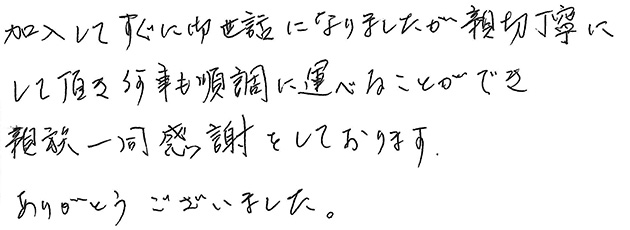 加入してすぐに御世話になりましたが親切丁寧に
して頂き何事も順調に運べることができ
親族一同感謝をしております.
ありがとうございました。